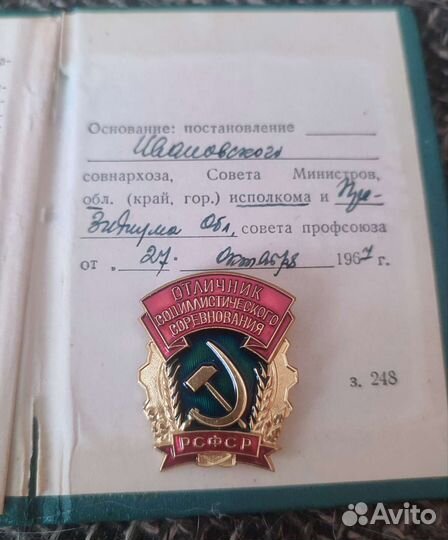 Основание: постановление
Ивановского
совнархоза, Совета Министров,
обл. (край, гор.) исполкома и Пре-
зидиума Обл. совета профсоюза
от „ 27. октября 1967 г.
ОТЛИЧНИК
СОЦИАЛИСТИЧЕСКОГО
СОРЕВНОВАНИЯ
РСФСР
з. 248
Avito